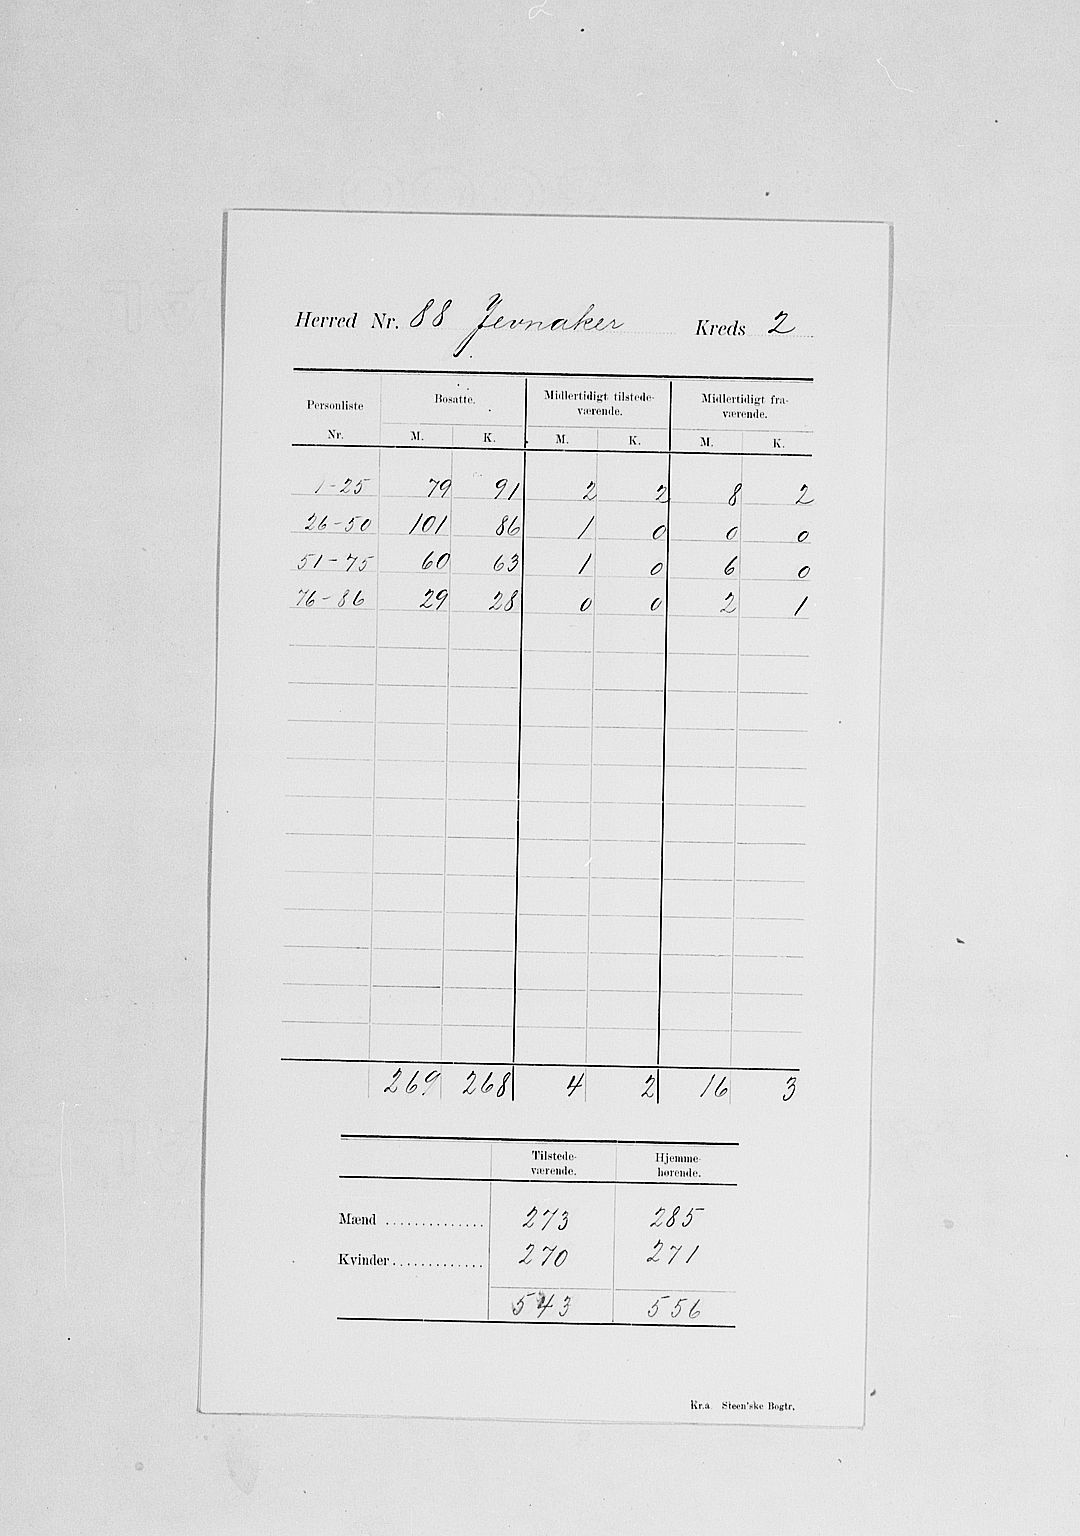 Herred Nr. 88 Jevnaker Kreds 2
Personliste Nr. Bosatte. Midlertidigt tilstede-værende. Midlertidigt fra-værende.
M. K. M. K. M. K.
1-25 79 91 2 2 8 2
26-50 101 86 1 0 0 0
51-75 60 63 1 0 6 0
76-86 29 28 0 0 2 1
269 268 4 2 16 3
Tilstede-værende. Hjemme-hørende.
Mænd .............. 273 285
Kvinder............. 270 271
543 556
Kr.a. Steen'ske Bogtr.